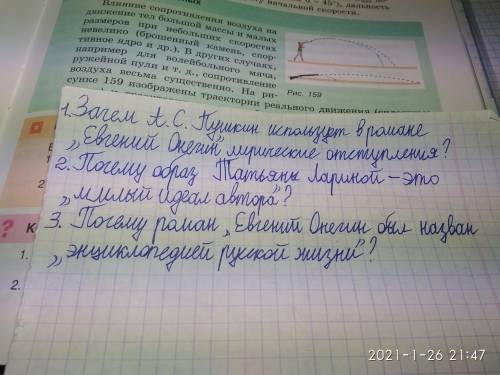 45°), дальность
ту начальной скорости.
Влияние сопротивления воздуха на
движение тел большой массы и малых
размеров при небольших скоростях
невелико (брошенный камень, спор-
тивное ядро и др.). В других случаях,
например для волейбольного мяча,
ружейной пули и т. д., сопротивление
воздуха весьма существенно. На ри-
сунке 159 изображены траектории реального движения
Рис. 159
1. Зачем А. С. Пушкин использует в романе
„Евгений Онегин" лирические отступления?
2. Почему образ Татьяны Лариной – это
„милый идеал автора"?
3. Почему роман „Евгений Онегин был назван
„энциклопедией русской жизни"?
?
1.
2.
2021-1-26 21:47